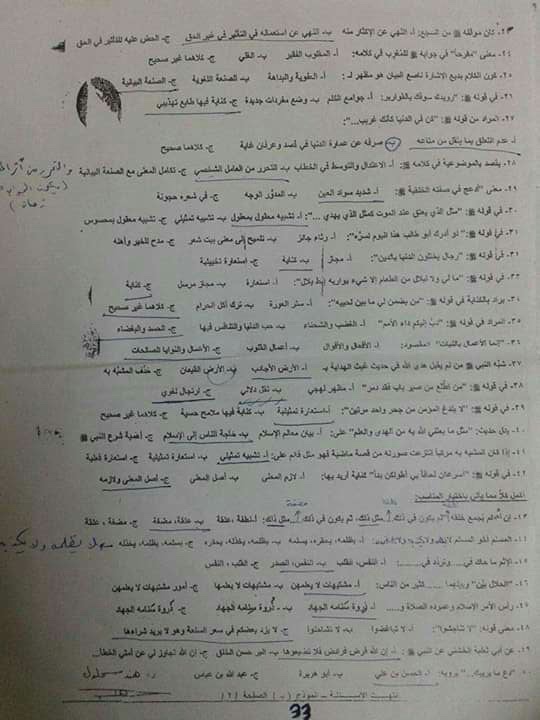 ٢٣- كان موقفه ﷺ من السجع: أ- النهي عن الإكثار منه ب- النهي عن استعماله في التأثير في غير الحق ج- الحض عليه للتأثير في الحق
٢٤- معنى "مفرحاً" في جوابه ﷺ للمغرب في كلامه: أ- المغلوب الفقير ب- القلي ج- كلاهما غير صحيح
٢٥- كون الكلام بديع الإشارة ناصع البيان هو مظهر لـ: أ- العفوية والبداهة ب- للصنعة اللغوية ج- الصنعة البيانية
٢٦- في قوله ﷺ: "رويدك سوقك بالقوارير: أ- جوامع الكلم ب- وضع مفردات جديدة ج- كناية فيها طابع تهذيبي
٢٧- المراد من قوله ﷺ: "كن في الدنيا كأنك غريب...":
أ- عدم التعلق بما يثقل من متاعه ب- صرفه عن عمارة الدنيا في قصد وعرفان غاية ج- كلاهما صحيح
٢٨- يقصد بالموضوعية في كلامه ﷺ: أ- الاعتدال والتوسط في الخطاب ب- التحرر من العامل الشخصي ج- تكامل المعنى مع الصنعة البيانية
٢٩- معنى "أدعج في صفاته الخلقية ﷺ: أ- شديد سواد العين ب- المدوّر الوجه ج- في شعره جعودة
٣٠- في قوله ﷺ: "مثل الذي يعتق عند الموت كمثل الذي يهدي ...": أ- تشبيه معقول بمعقول ب- تشبيه تمثيلي ج- تشبيه معقول بمحسوس
٣١- في قوله ﷺ: "لو أدرك أبو طالب هذا اليوم لسرّه": أ- رثاء جائز ب- تلميح إلى معنى بيت شعر ج- مدح للخير وأهله
٣١- في قوله ﷺ: "رجال يختلون الدنيا بالدين": أ- مجاز ب- كناية ج- استعارة تخييلية
٣٣- في قوله ﷺ: "ما لي ولا لبلال من الطعام إلا شيء يواريه إبط بلال": أ- استعارة ب- مجاز مرسل ج- كناية
٣٤- يراد بالكناية في قوله ﷺ: "من يضمن لي ما بين لحييه": أ- ستر العورة ب- ترك أكل الحرام ج- كلاهما غير صحيح
٣٥- المراد في قوله ﷺ: "دبّ إليكم داء الأمم" أ- الغضب والشحناء ب- حب الدنيا والتنافس فيها ج- الحسد والبغضاء
٣٦- "إنما الأعمال بالنيات" المقصود: أ- الأفعال والأقوال ب- أعمال القلوب ج- الأعمال والنوايا الصالحات
٣٧- شبّه النبي ﷺ من لم يقبل هدى الله في حديث غيث الهداية بـ أ- الأرض الأجادب ب- الأرض القيعان ج- حذف المشبه به
٣٨- في قوله ﷺ: "من اطلع من صير باب فقد دمر" أ- مظهر لهجي ب- نقل دلالي ج- ارتجال لغوي
٣٩- في قوله ﷺ: "لا يلدغ المؤمن من جحر واحد مرتين": أ- استعارة تمثيلية ب- كناية فيها ملامح حسية ج- كلاهما غير صحيح
٤٠- يدل حديث: "مثل ما بعثني الله به من الهدى والعلم" على: أ- بيان معالم الإسلام ب- حاجة الناس إلى الإسلام ج- أهمية شرع النبي ﷺ
٤١- إذا كان المشبه به مركباً انتزعت صورته من قصة ماضية فهو مثل قائم على: أ- تشبيه تمثيلي ب- استعارة تمثيلية ج- استعارة فعلية
٤٢- في قوله ﷺ: "أسرعكن لحاقاً بي أطولكن يداً" كناية أريد بها: أ- لازم المعنى ب- أصل المعنى ج- أصل المعنى ولازمه
أكمل كلاً مما يأتي باختيار المناسب:
٤٣- إن أحدكم يجمع خلقه ثم يكون في ذلك ... مثل ذلك، ثم يكون في ذلك ... مثل ذلك: أ- نطفة، علقة ب- علقة، مضغة ج- مضغة، علقة
٤٤- المسلم أخو المسلم لا أ- يظلمه، يحقره، يسلمه ب- يظلمه، يخذله، يحقره ج- يسلمه، يظلمه، يخذله
٤٥- الإثم ما حاك في.... وتردد في.....: أ- النفس، القلب ب- النفس، الصدر ج- القلب، النفس
٤٦- "الحلال بيّن" وبينهما ...... كثير من الناس: أ- مشتبهات لا يعلمهن ب- مشتبهات لا يعلمها ج- أمور مشتبهات لا يعلمهن
٤٧- رأس الأمر الإسلام وعموده الصلاة و..... أ- ذُروة سَنامه الجهاد ب- ذروة سنامه الجهاد ج- ذروة سنامه الجهاد
٤٨- معنى قوله: "لا تناجشوا": أ- لا تباغضوا ب- لا تشاحنوا ج- لا يزد بعضكم في سعر السلعة وهو لا يريد شراءها
٤٩- عن أبي ثعلبة الخشني عن النبي ﷺ: أ- إن الله فرض فرائض فلا تضيعوها ب- البر حسن الخلق ج- إن الله تجاوز لي عن أمتي الخطأ...
٥٠- "دع ما يريبك.." يرويه: أ- الحسن بن علي ب- أبو هريرة ج- عبد الله بن عباس
انتهت الأسئلة - نموذج (ب) الصفحة (٢)
33